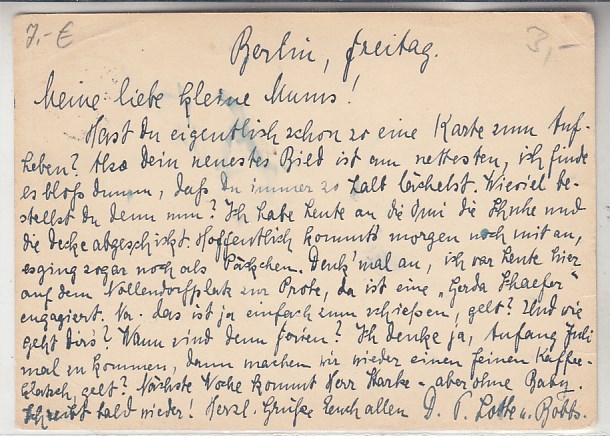 7,- €
3,-
Berlin, Freitag.
Meine liebe kleine Mums!
Hast du eigentlich schon so eine Karte zum Auf-
heben? Also dein neuestes Bild ist am nettesten, ich finde
es bloß dumm, daß du immer so halt lächelst. Wieviel be-
stellst du denn nun? Ich habe heute an die Omi die Schuhe und
die Decke abgeschickt. Hoffentlich kommt's morgen noch mit an,
es ging sogar noch als Päckchen. Denk' mal an, ich war heute hier
auf dem Nollendorfplatz zur Probe, da ist eine „Gerda Schaefer"
engagiert. Na. das ist ja einfach zum schießen, gelt? Und wie
geht dir's? Wann sind denn Ferien? Ich denke ja, Anfang Juli
mal zu kommen, dann machen wir wieder einen feinen Kaffee-
klatsch, gelt? Nächste Woche kommt Herr Starke - aber ohne Baby.
Schreibt bald wieder! Herzl. Grüße Euch allen D. T. Lotte u. Bobbs.